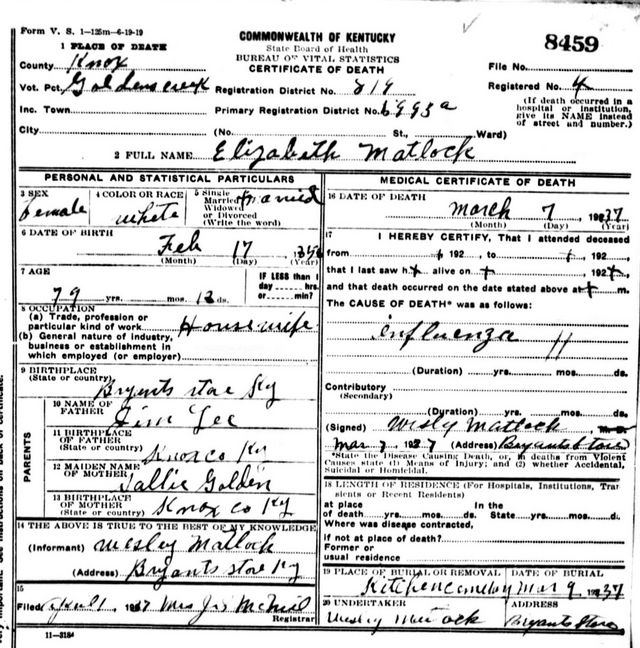 Form V. S. 1-125m-6-19-19
COMMONWEALTH OF KENTUCKY
State Board of Health
BUREAU OF VITAL STATISTICS
CERTIFICATE OF DEATH
8459
1 PLACE OF DEATH
County Knox
File No.
Vot. Pct.
Registration District No. 819
Registered No. 4
Inc. Town
Primary Registration District No.
(If death occurred in a hospital or institution, give its NAME instead of street and number.)
City
(No. St., Ward)
2 FULL NAME Elizabeth Matlock
PERSONAL AND STATISTICAL PARTICULARS
3 SEX
female
4 COLOR OR RACE
white
5 Single
Married
Widowed
or Divorced
(Write the word)
married
6 DATE OF BIRTH
Feb 17
(Month) (Day) (Year)
7 AGE
79 yrs. mos. ds.
IF LESS than 1
day hrs.
or min.?
8 OCCUPATION
(a) Trade, profession or
particular kind of work Housewife
(b) General nature of industry,
business or establishment in
which employed (or employer)
9 BIRTHPLACE
(State or country)
Bryants store Ky
PARENTS
10 NAME OF
FATHER
Jim Lee
11 BIRTHPLACE
OF FATHER
(State or country)
Knox co Ky
12 MAIDEN NAME
OF MOTHER
Sallie Golden
13 BIRTHPLACE
OF MOTHER
(State or country)
Knox co Ky
14 THE ABOVE IS TRUE TO THE BEST OF MY KNOWLEDGE
(Informant) Wesley Matlock
(Address) Bryants store Ky
15
Filed 1937 Mrs
Registrar
11-3184
MEDICAL CERTIFICATE OF DEATH
16 DATE OF DEATH
March 7, 1937
(Month) (Day) (Year)
17 I HEREBY CERTIFY, That I attended deceased
from 192 , to 192 ,
that I last saw h alive on , 192 ,
and that death occurred on the date stated above at m.
The CAUSE OF DEATH* was as follows:
influenza 11
(Duration) yrs. mos. ds.
Contributory
(Secondary)
(Duration) yrs. mos. ds.
(Signed) Wesly Matlock
Mar 7 1937 (Address) Bryants Store
*State the Disease Causing Death, or, in deaths from Violent
Causes state (1) Means of Injury; and (2) whether Accidental,
Suicidal or Homicidal.
18 LENGTH OF RESIDENCE (For Hospitals, Institutions, Tran
sients or Recent Residents)
at place In the
of death yrs. mos. ds. State yrs. mos. d
Where was disease contracted,
if not at place of death?
Former or
usual residence
19 PLACE OF BURIAL OR REMOVAL
DATE OF BURIAL
Kitchen cemetery Mar 9 1937
20 UNDERTAKER
ADDRESS
Wesley Bryants Store